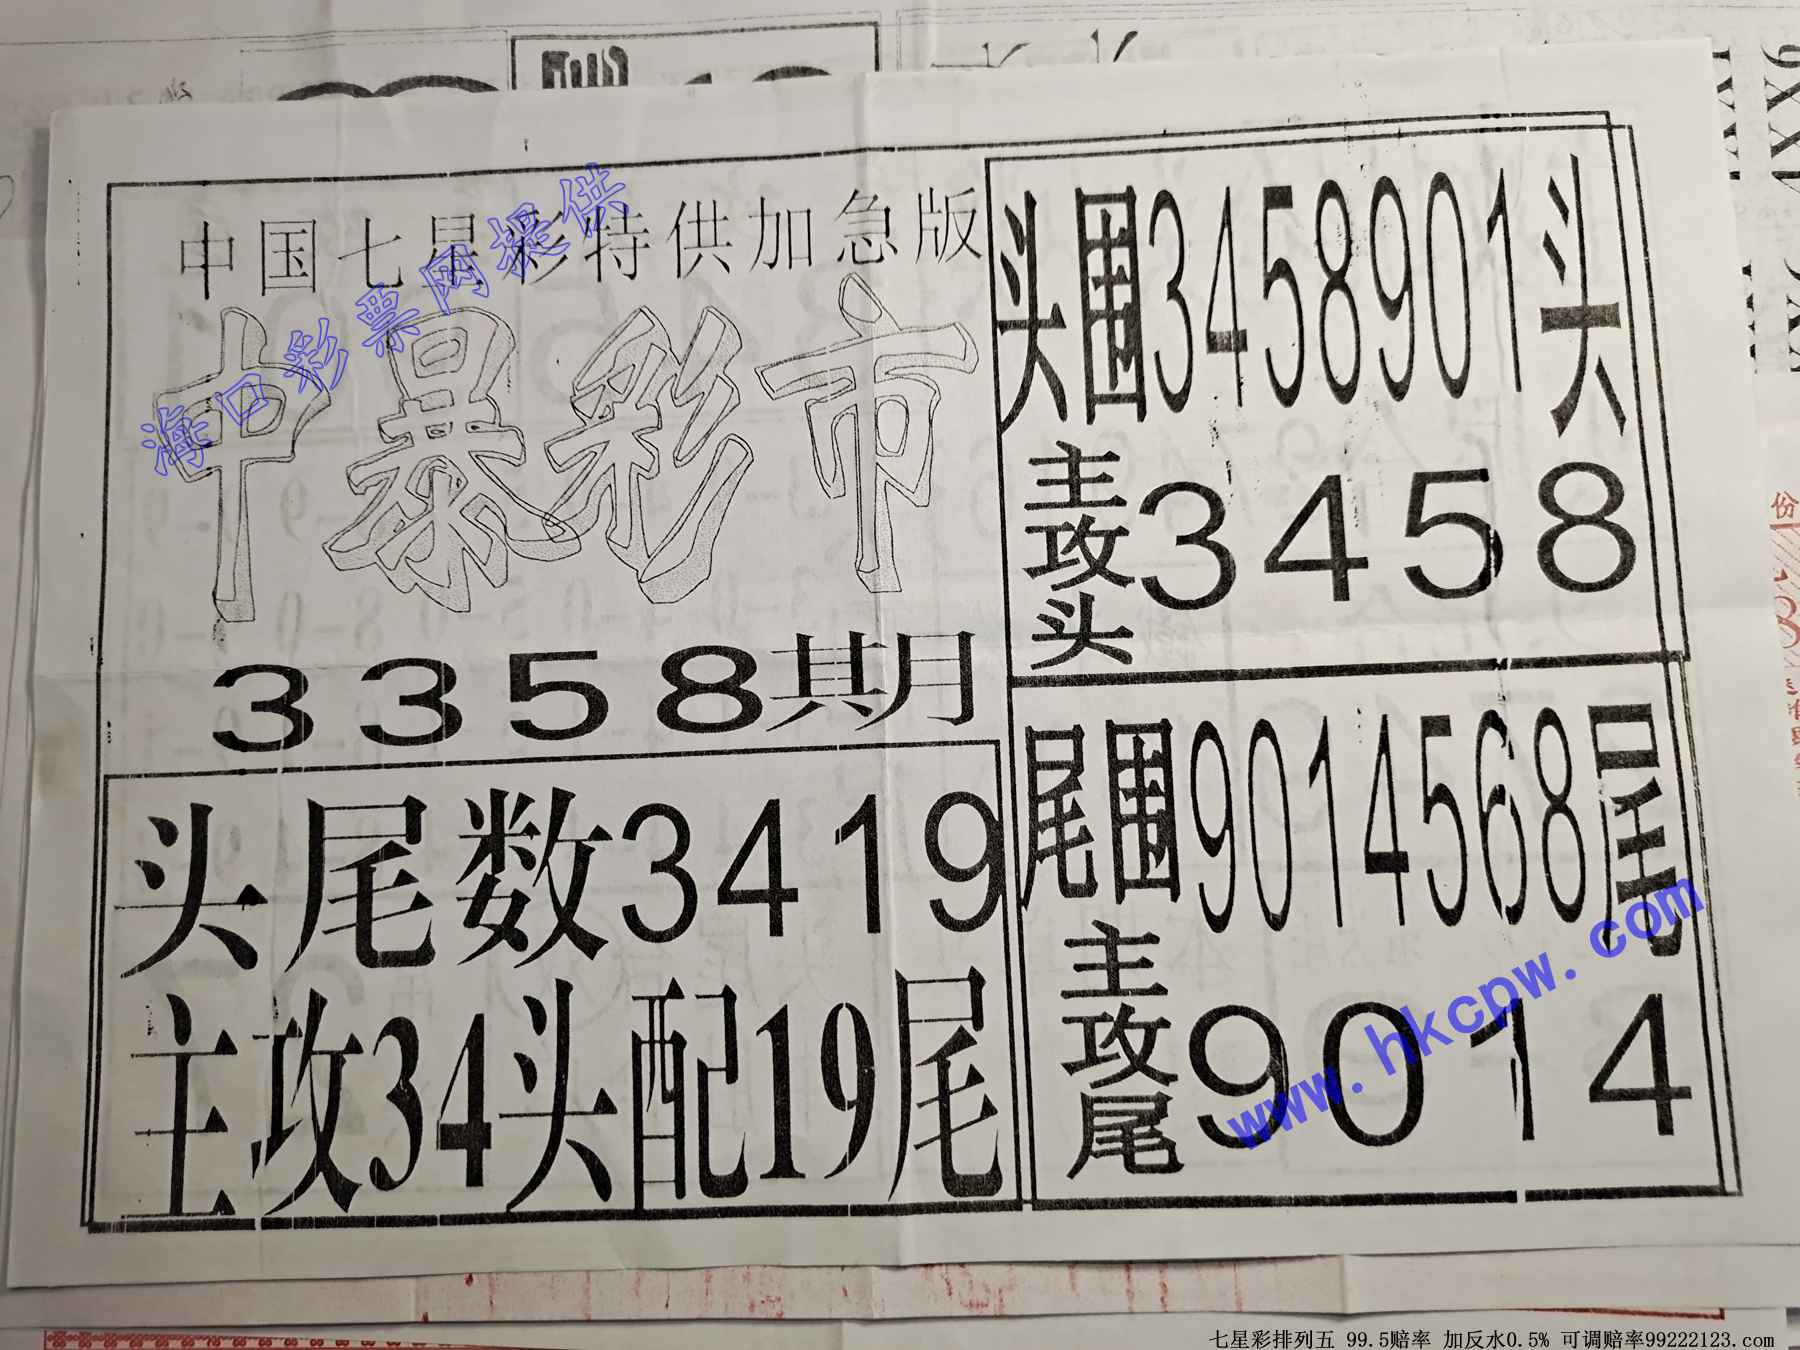 中国七星彩特供加急版
中暴彩市
3358期
头尾数3419
主攻34头配19尾
头围3458901头
主攻头3458
尾围9014568尾
主攻尾9014
海口彩票网提供
www.hkcpw.com
份
七星彩排列五 99.5赔率 加反水0.5% 可调赔率99222123.com